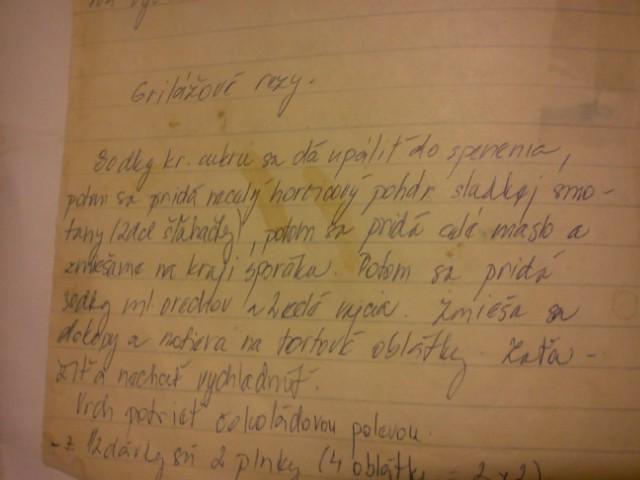 Grilážové rezy.
30dkg kr. cukru sa dá upáliť do spenenia,
potom sa pridá necelý horčicový pohár sladkej smo-
tany (2dcl šľahačky), potom sa pridá celé maslo a
zmiešame na kraji šporáka. Potom sa pridá
30dkg ml. orechov a 2 celé vajcia. Zmieša sa
dokopy a natiera na tortové oblátky. Zaťa-
žiť a nechať vychladnúť.
Vrch potrieť čokoládovou polevou.
- z 1/2 dávky sú 2 plnky (4 oblátky = 2x2)